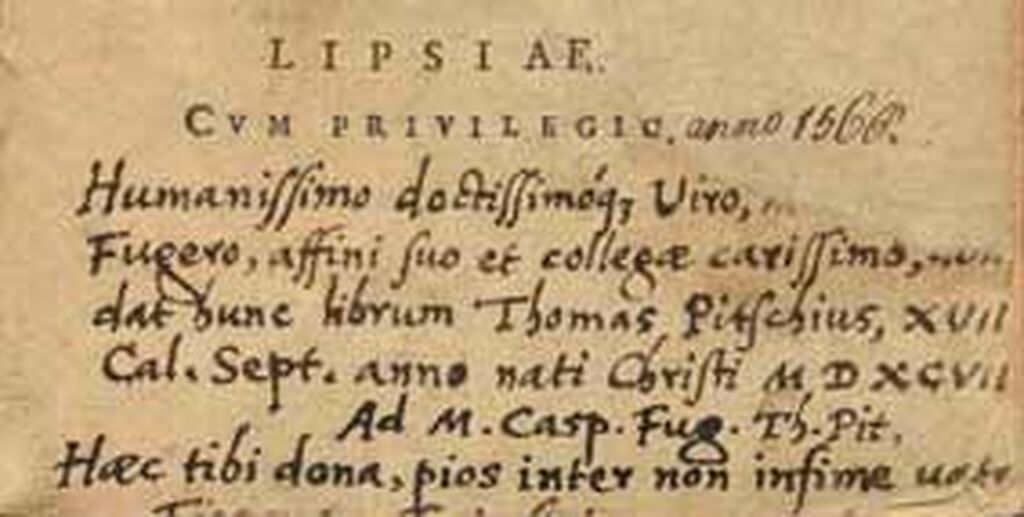 LIPSIAE.
CVM PRIVILEGIO. anno 1566.
Humanissimo doctissimóq; Viro,
Fugero, affini suo et collegæ carissimo,
dat hunc librum Thomas Pitschius, XVII
Cal. Sept. anno nati Christi M D XCVII
Ad M. Casp. Fug. Th. Pit.
Hæc tibi dona, pios inter non infime